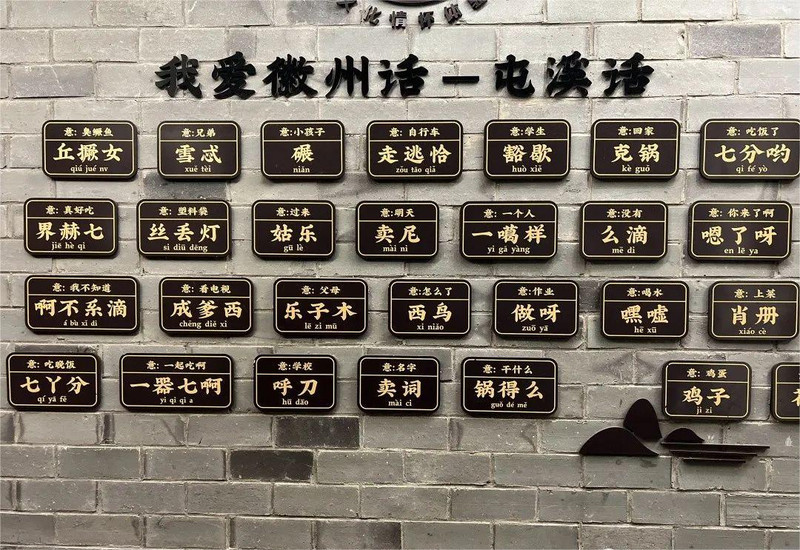 我爱徽州话—屯溪话
意:臭鳜鱼
丘撅女
qiú jué nv
意:兄弟
雪忒
xuě tèi
意:小孩子
碾
niǎn
意:自行车
走逃恰
zǒu táo qià
意:学生
豁歇
huò xiē
意:回家
克锅
kè guó
意:吃饭了
七分哟
qi fé yò
意:真好吃
界赫七
jiē hè qi
意:塑料袋
丝丢灯
sì diū dēng
意:过来
姑乐
gū lè
意:明天
卖尼
mài ni
意:一个人
一噶样
yi gá yàng
意:没有
么滴
mě di
意:你来了啊
嗯了呀
en lē ya
意:我不知道
啊不系滴
á bù xì di
意:看电视
成爹西
chéng diē xi
意:父母
乐子木
lē zi mǔ
意:怎么了
西鸟
xi niǎo
意:作业
做呀
zuō yā
意:喝水
嘿嘘
hē xū
意:上菜
肖册
xiáo cè
意:吃晚饭
七丫分
qí yā fē
意:一起吃啊
一器七啊
yi qi qi a
意:学校
呼刀
hū dāo
意:名字
卖词
mài ci
意:干什么
锅得么
guō dé mē
意:鸡蛋
鸡子
ji zi